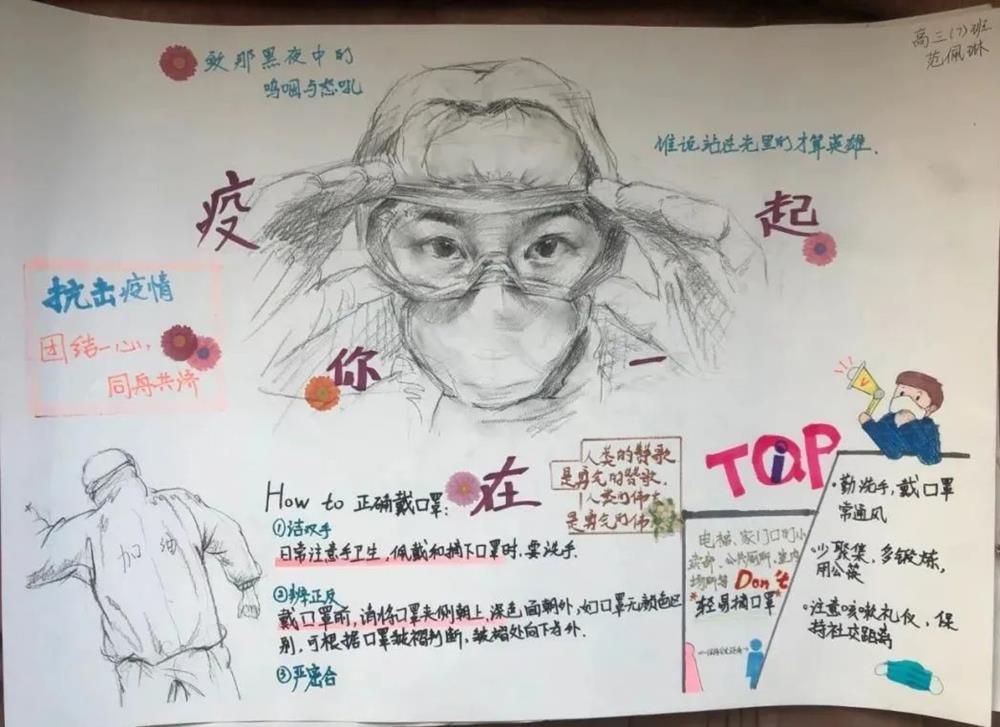 高三(7)班
范佩琳
致那黑夜中的
呜咽与怒吼
谁说站在光里的才算英雄.
疫
起
你
一
在
抗击疫情
团结一心,
同舟共济
加油
How to 正确戴口罩:
①洁双手
日常注意手卫生,佩戴和摘下口罩时,要洗手.
②辨正反
戴口罩前,请将口罩夹侧朝上,深色面朝外,如口罩无颜色区
别,可根据口罩皱褶判断,皱褶处向下为外.
③严密合
人类的赞歌
是勇气的赞歌.
人类的伟
是勇气的伟
TiP
电梯、家门口的小
卖部、公共厕所、室内
场所等 Don't
*轻易摘口罩*
·勤洗手,戴口罩
常通风
·少聚集,多锻炼,
用公筷
·注意咳嗽礼仪,保
持社交距离